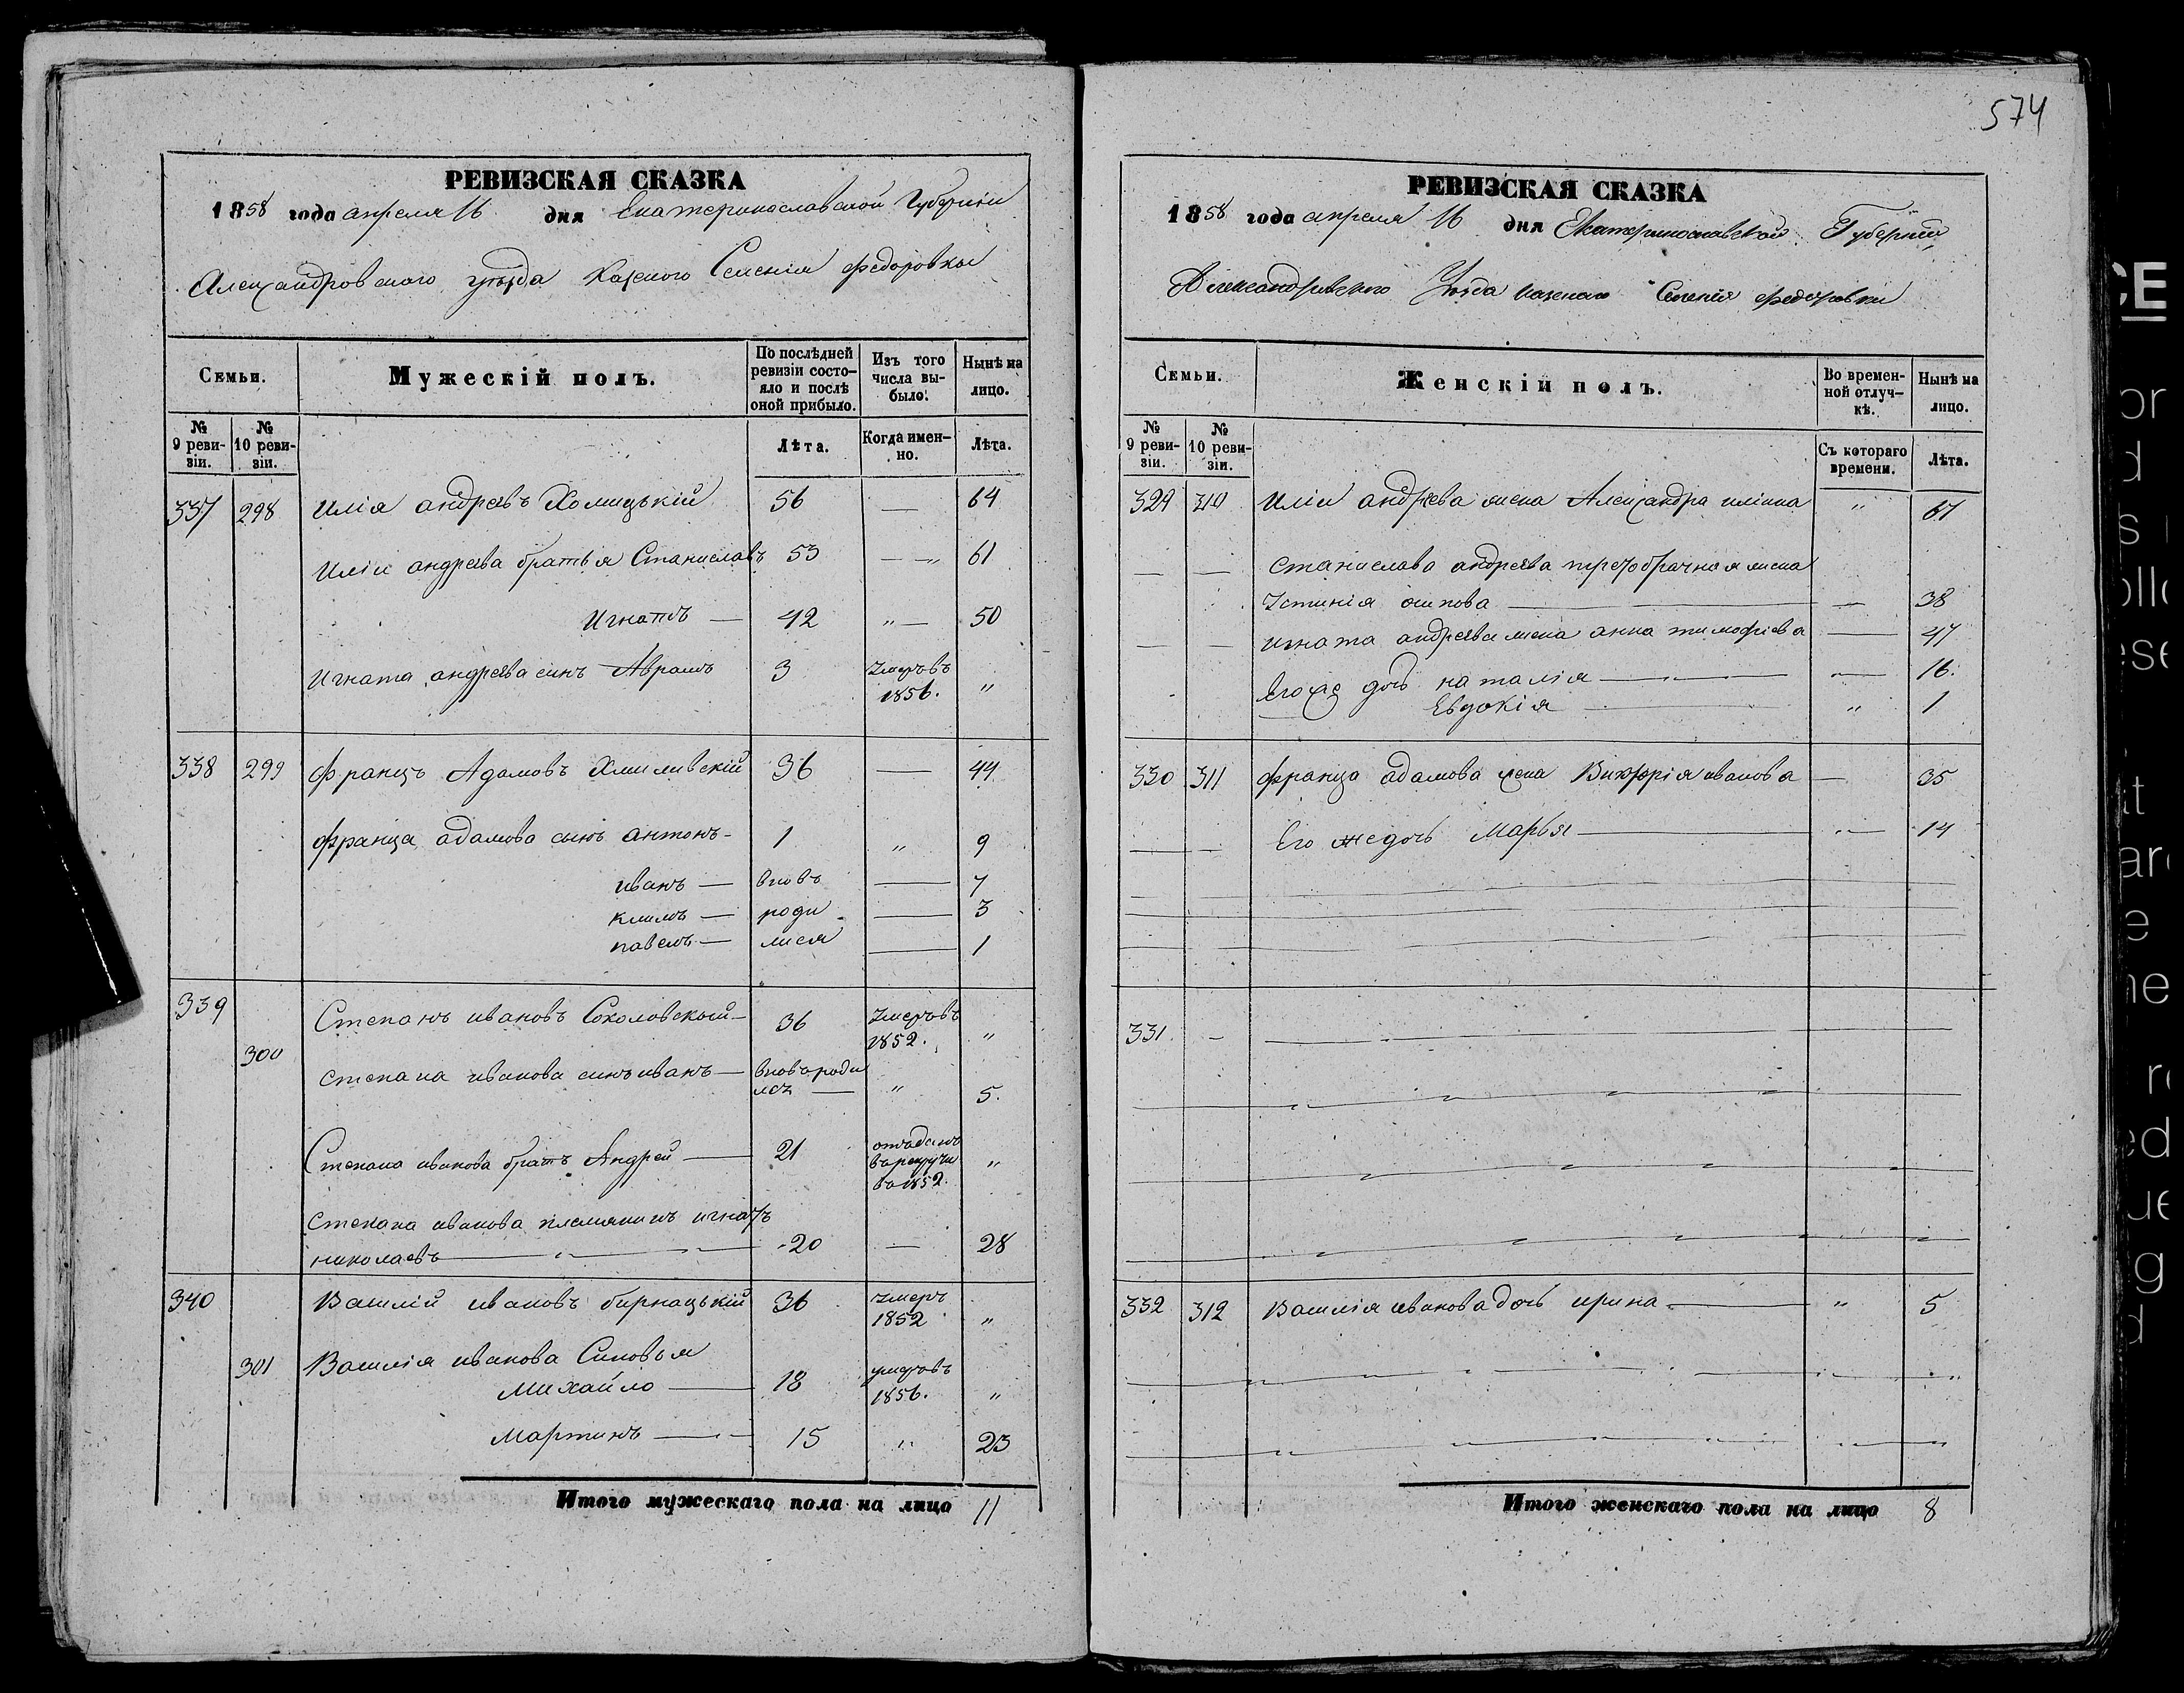 РЕВИЗСКАЯ СКАЗКА
1858 года апреля 16 дня Екатеринославской Губернии
Александровского уезда Казеного Селенія Федоровки
Семьи. Мужескій полъ. По послѣдней ревизіи состояло и послѣ оной прибыло. Изъ того числа выбыло. Нынѣ на лицо.
№ 9 ревизіи. № 10 ревизіи. Лѣта. Когда именно. Лѣта.
337 298 Илія андреевъ Холицький 56 — 64
Иліи андреева братья Станиславъ 53 — „ 61
Игнатъ — 42 „ — 50
Игната андреева синъ Аврамъ 3 Умеръ въ 1856. „
338 299 францъ Адамовъ Хмиливскій 36 — 44
франца адамова сынъ антонъ - 1 „ 9
иванъ — вновъ — 7
климъ — роди — 3
павелъ — лися — 1
339 Степанъ ивановъ Соколовский — 36 Умеръ въ 1852. „
300 Степана иванова синъ иванъ — вновъ роди лсъ — „ 5.
Степана иванова братъ Андрей — 21 отъданъ въ рекрути въ 1852. „
Степана иванова племяникъ игнатъ
николаевъ — „ — 20 — 28
340 Василій ивановъ бирнацькій 36 Умеръ 1852 „
301 Василія иванова Синовья
Михайло — 18 умеръ въ 1856. „
Мартинъ — „ - 15 „ 23
Итого мужескаго пола на лицо 11
574
РЕВИЗСКАЯ СКАЗКА
1858 года апреля 16 дня Екатеринославской Губерніи,
Александровского Уезда казенаго Селенія федоровки
Семьи. Женскій полъ. Во временной отлучкѣ. Нынѣ на лицо.
№ 9 ревизіи. № 10 ревизіи. Съ котораго времени. Лѣта.
329 310 Иліи андреева жена Александра иліина „ 67
— — Станислава андреева третобрачная жена
Устинія осипова — — 38
— — игната андреева жена анна тимофіева — 47
Его же дочь наталія — „ — 16.
Евдокія — „ 1
330 311 франца адамова жена Виктория иванова — 35
— — Его же дочь Марья — „ — 14
331. - —
332 312 Василія иванова дочь ирина. — „ 5
Итого женскаго пола на лицо 8